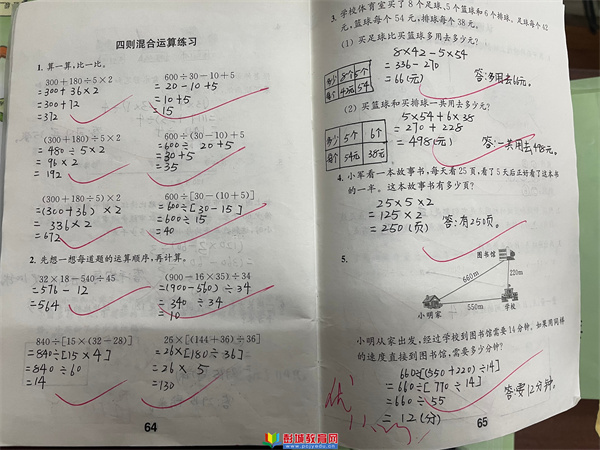 四则混合运算练习
1. 算一算,比一比。
300+180÷5×2
=300+36×2
=300+72
=372
600÷30-10+5
=20-10+5
=10+5
=15
(300+180)÷5×2
=480÷5×2
=96×2
=192
600÷(30-10)+5
=600÷20+5
=30+5
=35
(300+180÷5)×2
=(300+36)×2
=336×2
=672
600÷[30-(10+5)]
=600÷[30-15]
=600÷15
=40
2. 先想一想每道题的运算顺序,再计算。
32×18-540÷45
=576-12
=564
(900-16×35)÷34
=(900-560)÷34
=340÷34
=10
840÷[15×(32-28)]
=840÷[15×4]
=840÷60
=14
26×[(144+36)÷36]
=26×[180÷36]
=26×5
=130
64
3. 学校体育室买了8个足球、5个篮球和6个排球。足球每个42
元,篮球每个54元,排球每个38元。
(1) 买足球比买篮球多用去多少元?
多少 8个 5个
每个 42元 54
8×42-5×54
=336-270
=66(元)
答:多用去66元。
(2) 买篮球和买排球一共用去多少元?
多少 5个 6个
每个 54元 38元
5×54+6×38
=270+228
=498(元)
答:一共用去498元。
4. 小军看一本故事书,每天看25页,看了5天后正好看了这本书
的一半。这本故事书有多少页?
25×5×2
=125×2
=250(页)
答:有250页。
5.
图书馆
660m
220m
550m
小明家
学校
小明从家出发,经过学校到图书馆需要14分钟。如果用同样
的速度直接到图书馆,需要多少分钟?
660÷[(550+220)÷14]
=660÷[770÷14]
=660÷55
=12(分)
答:要12分钟。
优
65
彭城教育网
www.pcjyedu.cn